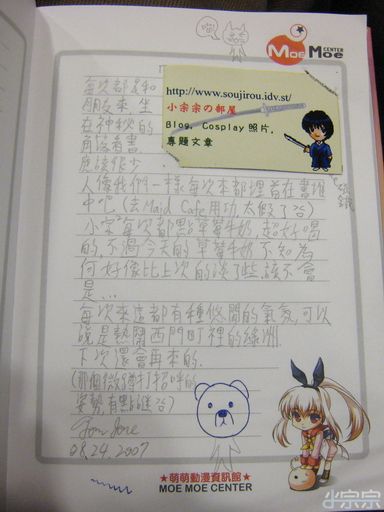 MOE MOE CENTER
http://www.soujirou.idv.st/
小宗宗の部屋
Blog. Cosplay 照片.
專題文章
每次都是和
朋友來,坐
在神秘的
角落看書.
應該很少
人像我們一樣每次來都埋首在書堆
中吧(去Maid Cafe用功,太假了啦)
小宗每次都點草莓牛奶,超好喝
的,不過今天的草莓牛奶不知為
何好像比上次的淡了些,該不會
是...
每次來這都有種悠閒的氣氛,可以
說是熱鬧西門町裡的綠洲.
下次還會再來的.
姿勢有點
08.24.2007
★萌萌動漫資訊館★
MOE MOE CENTER
小宗宗